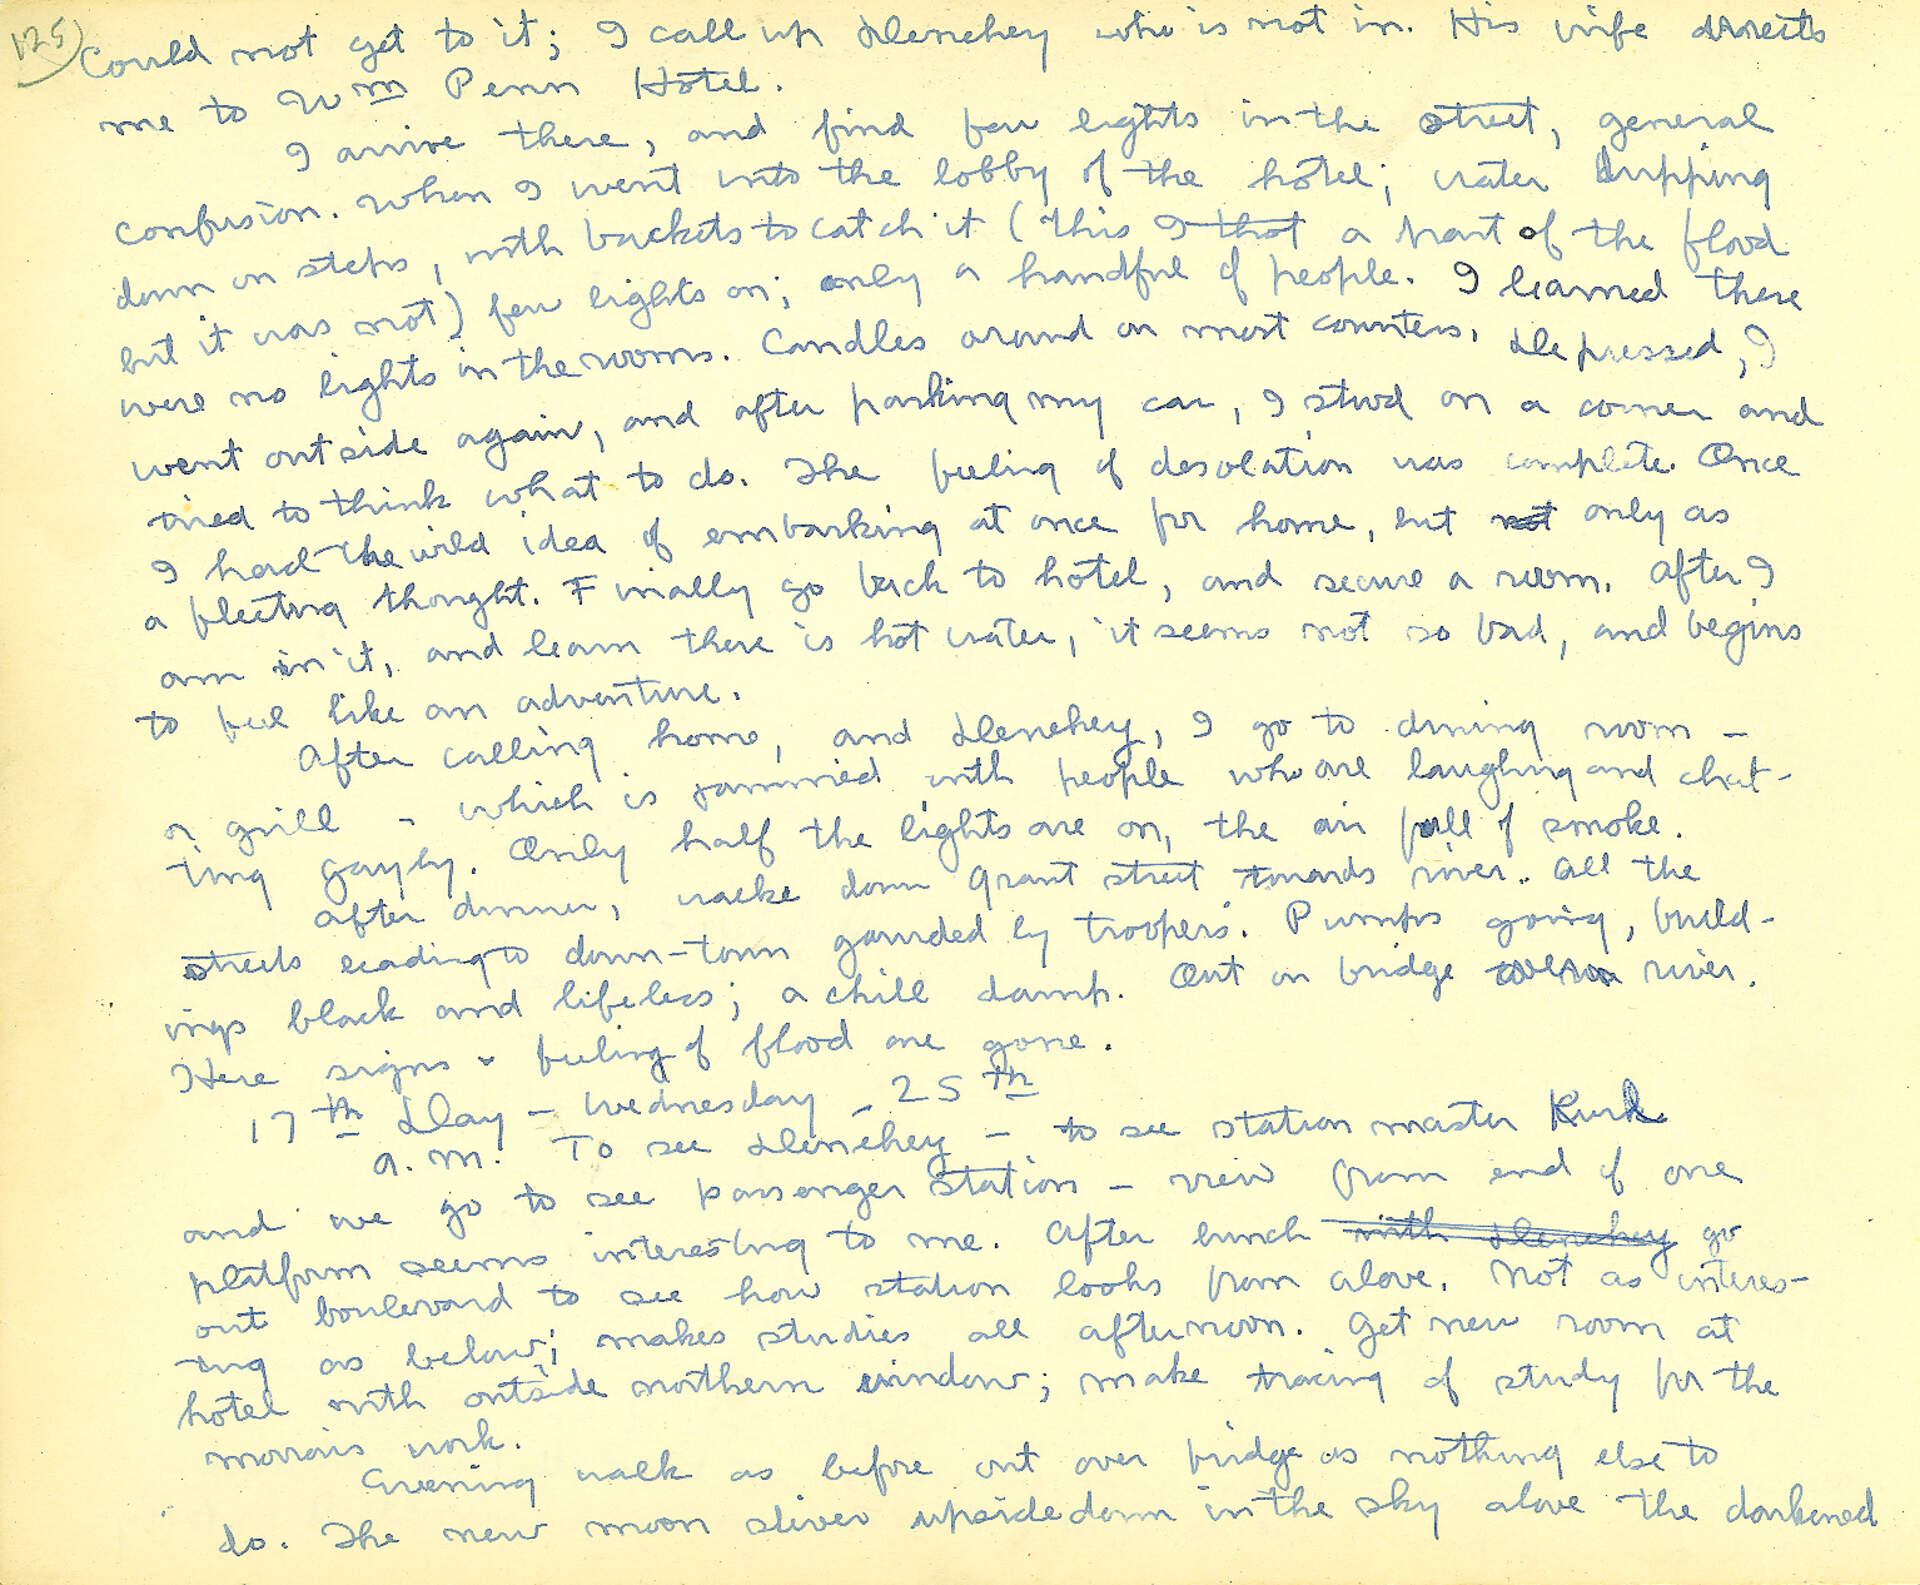 125)
Could not get to it; I call up Denehey who is not in. His wife directs
me to Wm Penn Hotel.
I arrive there, and find few lights in the street, general
confusion. When I went into the lobby of the hotel; water dripping
down on steps, with buckets to catch it (this I that a part of the flood
but it was not) few lights on; only a handful of people. I learned there
were no lights in the rooms. Candles around on most counters. Depressed, I
went outside again, and after parking my car, I stood on a corner and
tried to think what to do. The feeling of desolation was complete. Once
I had the wild idea of embarking at once for home, but not only as
a fleeting thought. Finally go back to hotel, and secure a room. After I
am in it, and learn there is hot water, it seems not so bad, and begins
to feel like an adventure.
After calling home, and Denehey, I go to dining room –
or grill – which is jammed with people who are laughing and chat-
ting gayly. Only half the lights are on, the air full of smoke.
After dinner, walke down Grant street towards river. All the
streets leading to down-town gaurded by troopers. Pumps going, build-
ings black and lifeless; a chill damp. Out on bridge over river.
Here signs & feeling of flood are gone.
17th Day – Wednesday – 25th
A.M. To see Denehey – to see station master Kirk
and we go to see passenger station – view from end of one
platform seems interesting to me. After lunch with Denehey go
out boulevard to see how station looks from above. Not as interes-
ting as below; makes studies all afternoon. Get new room at
hotel with outside northern window; make tracing of study for the
morrow's work.
Evening walk as before out over bridge as nothing else to
do. The new moon sliver upside down in the sky above the darkened